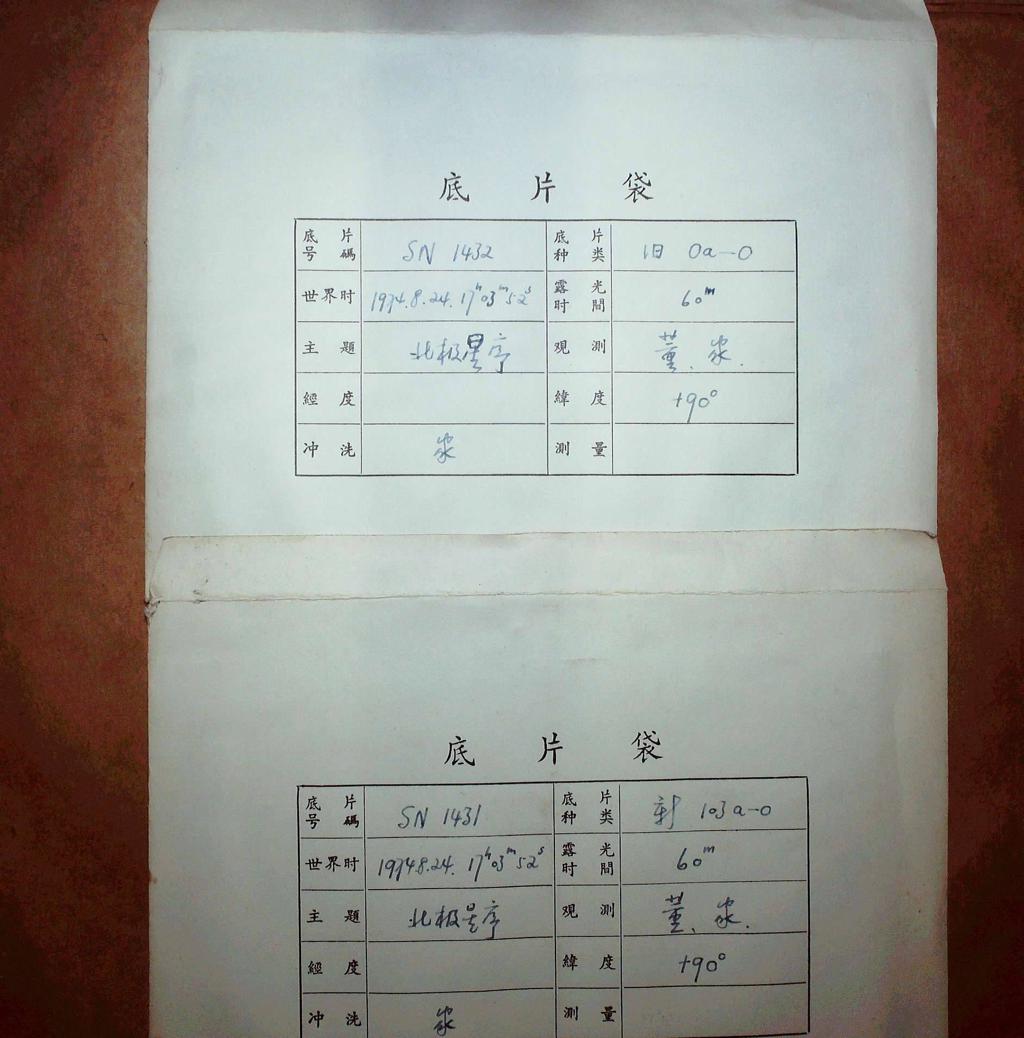 底 片 袋
底片号碼 SN 1432 底片种类 旧 Oa—O
世界时 1974.8.24. 17ʰ03ᵐ52ˢ 露光时間 60ᵐ
主題 北极星序 观測 董、
經度 緯度 +90°
冲洗 測量
底 片 袋
底片号碼 SN 1431 底片种类 新 103a-O
世界时 1974.8.24. 17ʰ03ᵐ52ˢ 露光时間 60ᵐ
主題 北极星序 观測 董、
經度 緯度 +90°
冲洗 測量